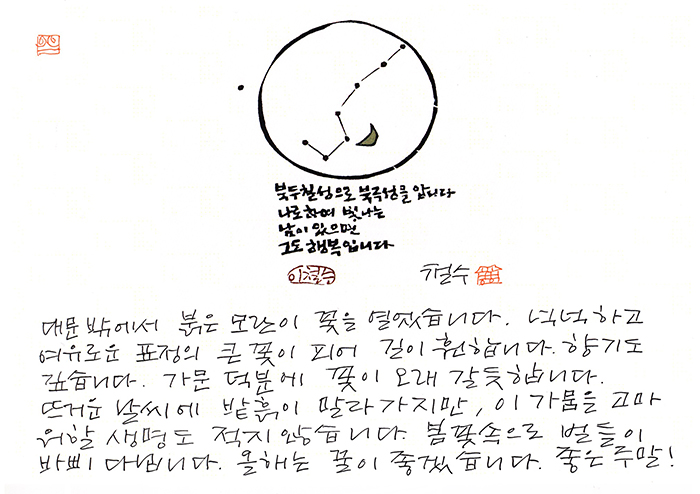 북두칠성으로 북극성을 압니다
나로하여 빛나는
남이 있으면
그도 행복입니다
이철수
철수
대문 밖에서 붉은 모란이 꽃을 열었습니다. 넉넉하고
여유로운 표정의 큰 꽃이 피어 길이 훤합니다. 향기도
깊습니다. 가문 덕분에 꽃이 오래 갈듯합니다.
뜨거운 날씨에 밭흙이 말라 가지만, 이 가뭄을 고마
워할 생명도 적지 않습니다. 봄꽃속으로 벌들이
바삐 다닙니다. 올해는 꿀이 좋겠습니다. 좋은 주말!